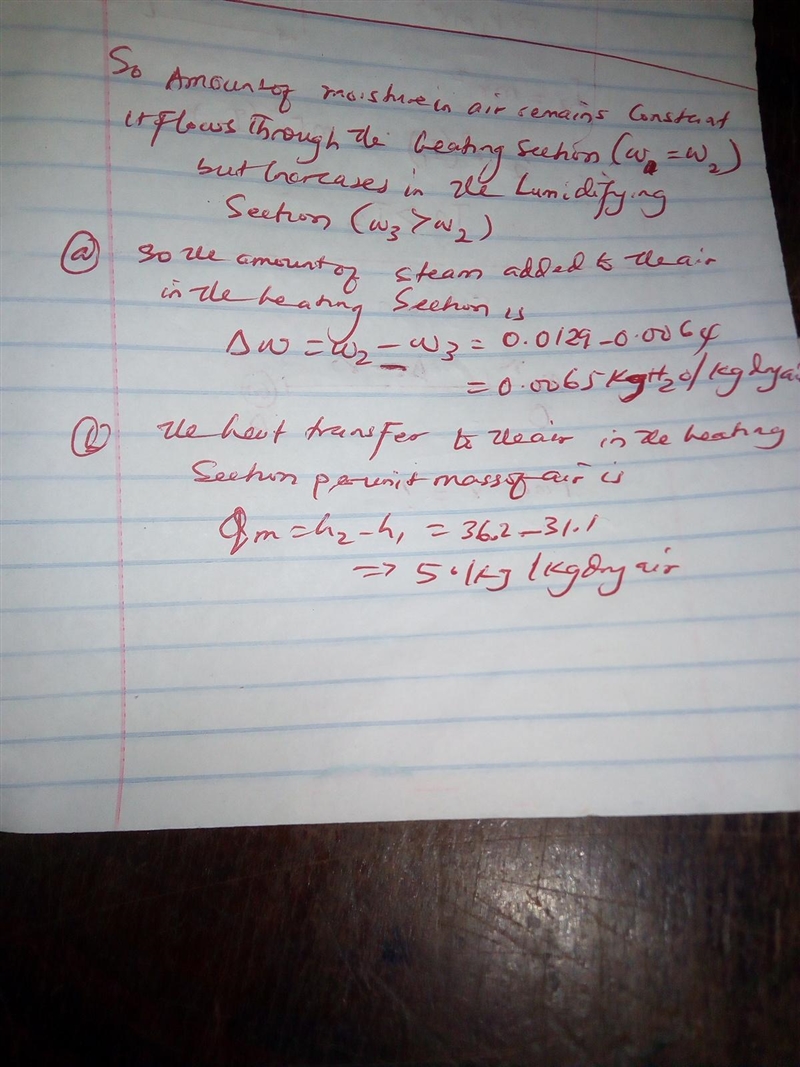 So Amount of moisture in air remains Constant
it flows Through the heating Section (ω₁ = ω₂)
but Increases in the humidifying
Section (ω₃ > ω₂)
(a) So the amount of steam added to the air
in the heating Section is
Δω = ω₂ - ω₃ = 0.0129 - 0.0064
= 0.0065 kg H₂O/kg dry air
(b) the heat transfer to the air in the heating
Section per unit mass of air is
qm = h₂ - h₁ = 36.2 - 31.1
=> 5.1 kg / kg dry air